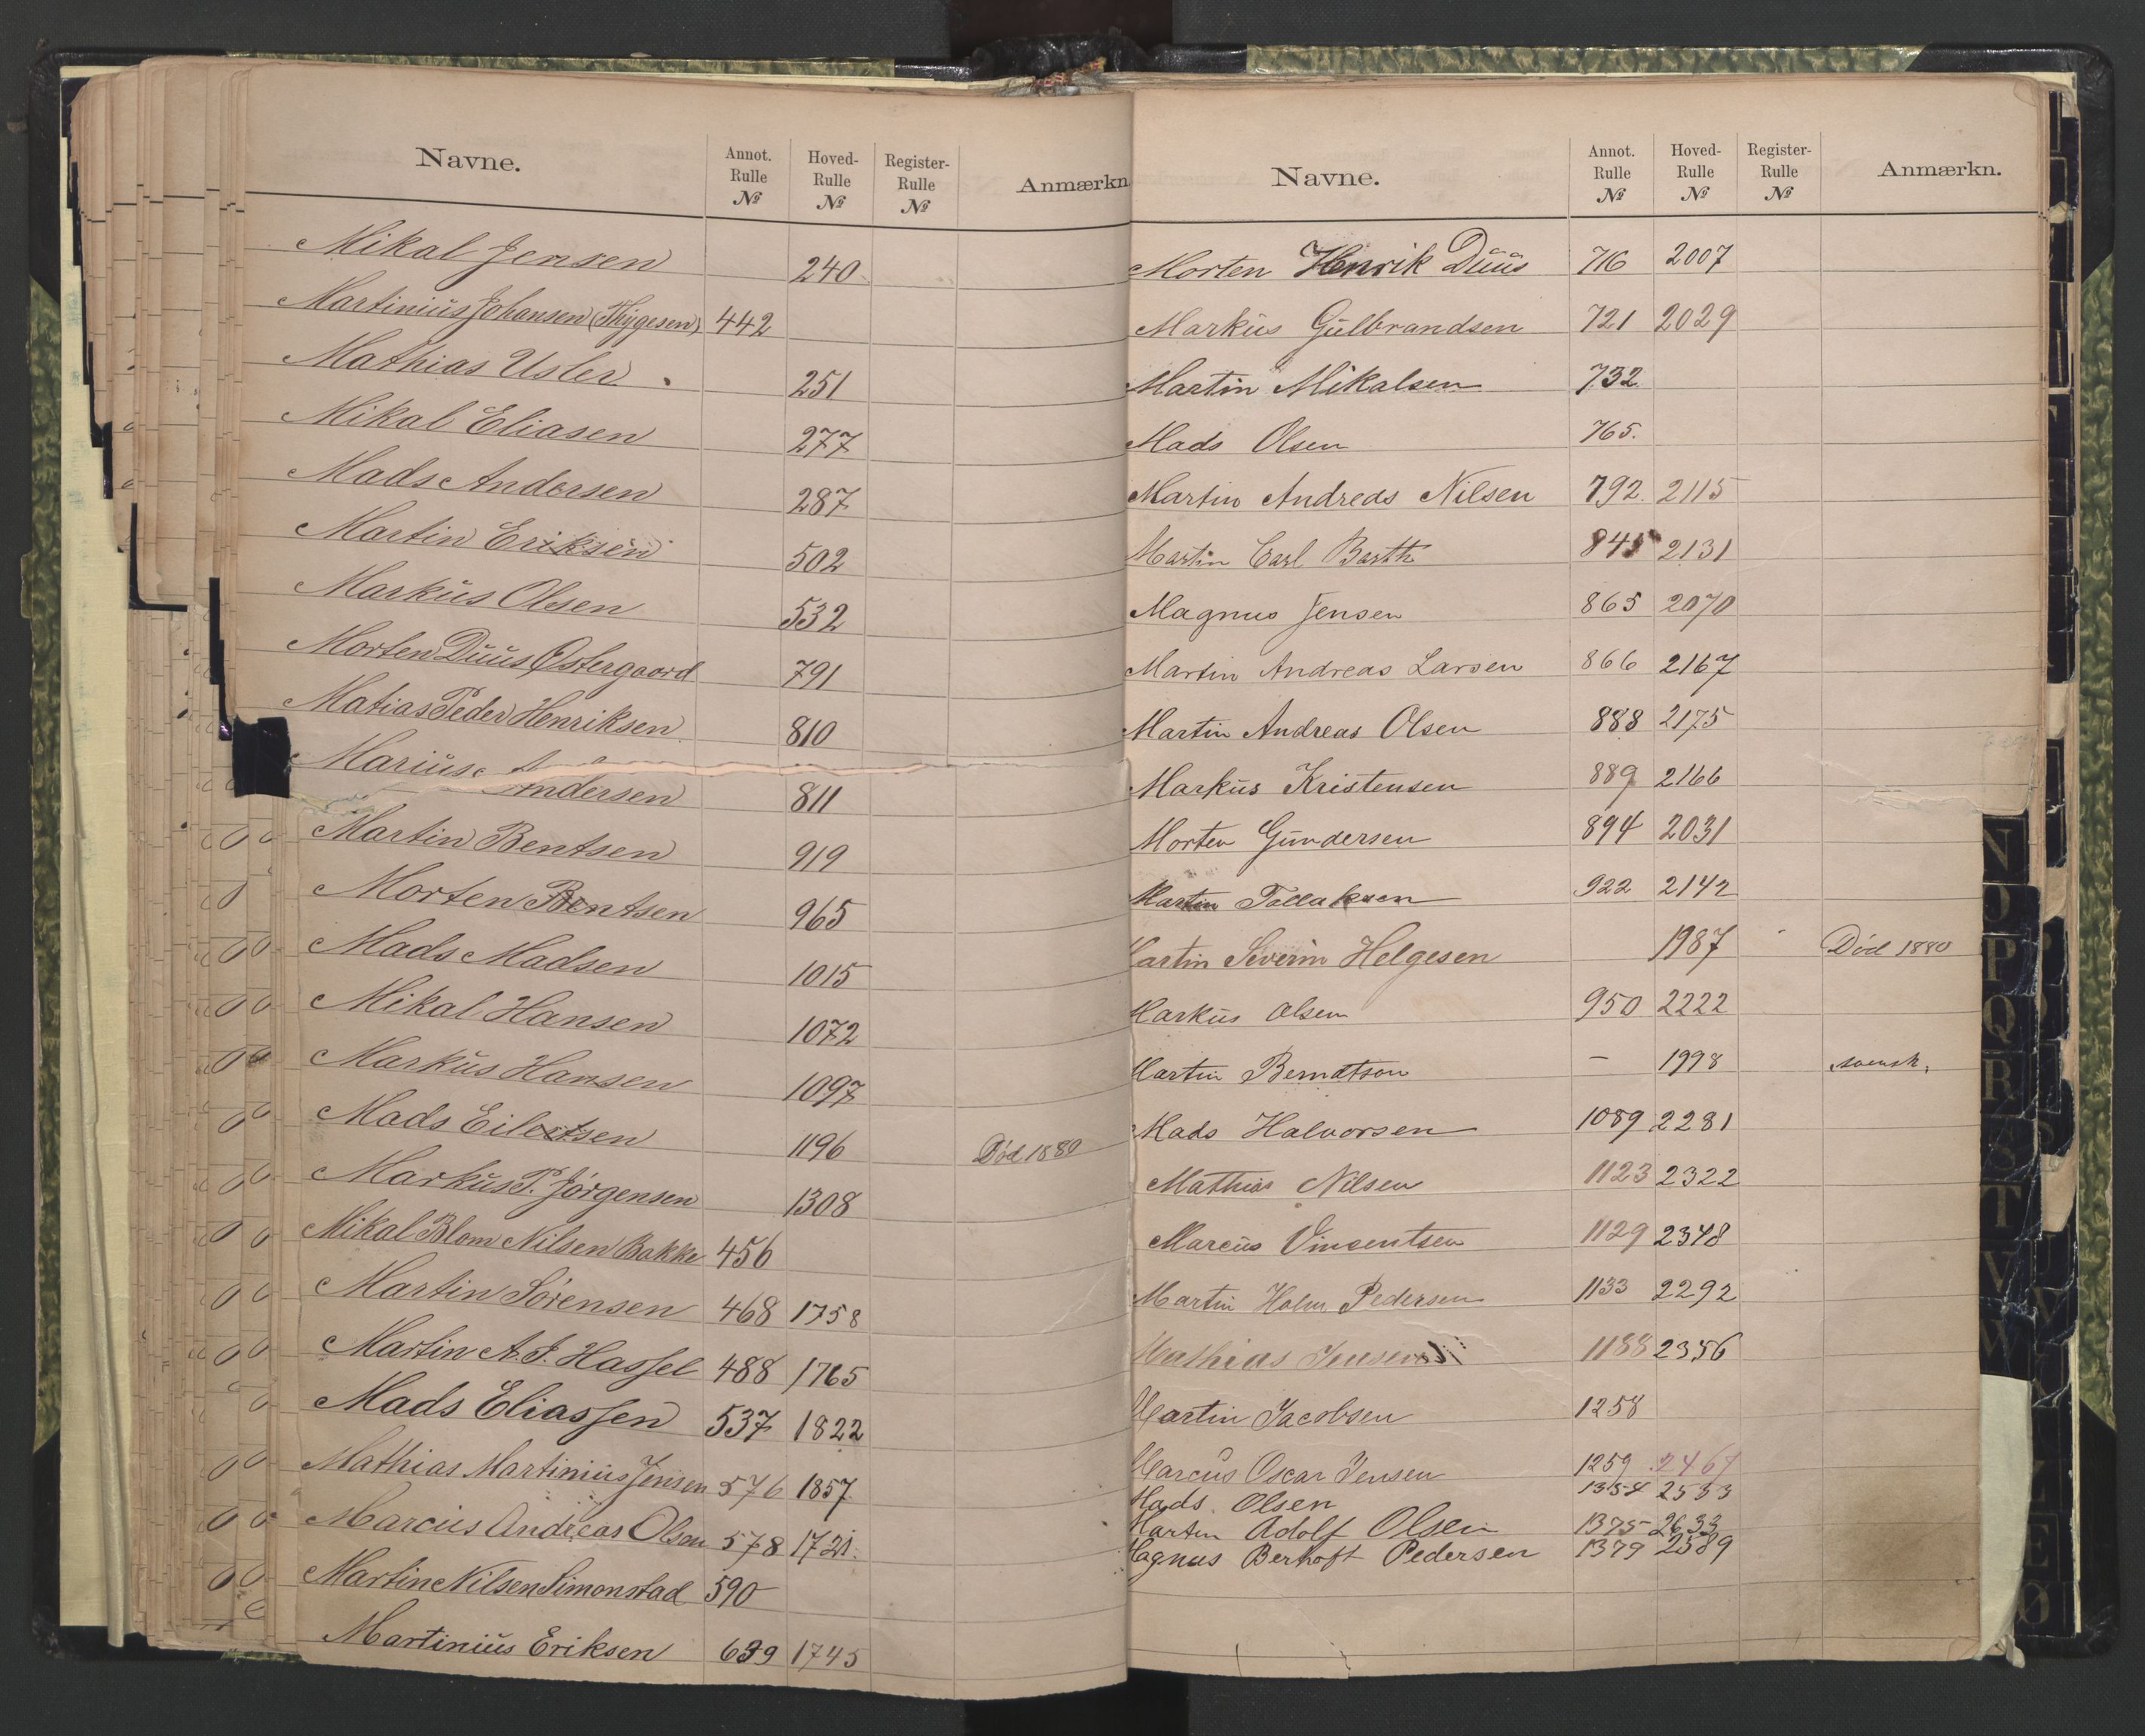 Navne. Annot. Rulle № Hoved-Rulle № Register-Rulle № Anmærkn
Mikal Jensen 240
Martinius Johansen (Thygesen) 442
Mathias Usler 251
Mikal Eliasen 277
Mads Andersen 287
Martin Eriksen 502
Markus Olsen 532
Morten Duus Østergaard 791
Matias Peder Henriksen 810
Marius Andersen 811
Martin Bentsen 919
Morten Bentsen 965
Mads Madsen 1015
Mikal Hansen 1072
Markus Hansen 1097
Mads Eilertsen 1196 Død 1880
Markus P. Jörgensen 1308
Mikal Blom Nilsen Bakke 456
Martin Sörensen 468 1758
Martin A. J. Hassel 488 1765
Mads Eliassen 537 1822
Mathias Martinius Jensen 576 1857
Marcus Andreas Olsen 578 1721
Martin Nilsen Simonstad 590
Martinius Eriksen 639 1745
Navne. Annot. Rulle № Hoved-Rulle № Register-Rulle № Anmærkn.
Morten Henrik Duus 716 2007
Markus Gulbrandsen 721 2029
Martin Mikalsen 732
Mads Olsen 765.
Martin Andreas Nilsen 792. 2115
Martin Carl Barth 845 2131
Magnus Jensen 865 2070
Martin Andreas Larsen 866 2167
Martin Andreas Olsen 888 2175
Markus Kristensen 889 2166
Morten Gundersen 894 2031
Martin Tallaksen 922 2142
Martin Severin Helgesen 1987 Död 1880
Markus Olsen 950 2222
Martin Berndtson – 1998 svensk.
Mads Halvorsen 1089 2281
Mathias Nilsen 1123 2322
Marcus Vincentsen 1129 2348
Martin Holm Pedersen 1133 2292
Mathias Jensen 1188 2356
Martin Jacobsen 1258
Marcus Oscar Jensen 1259 2467
Mads Olsen 1354 2553
Martin Adolf Olsen 1375 2633
Magnus Berhoft Pedersen 1379 2589
N
P
Q
R
S
T
V
W
Ø